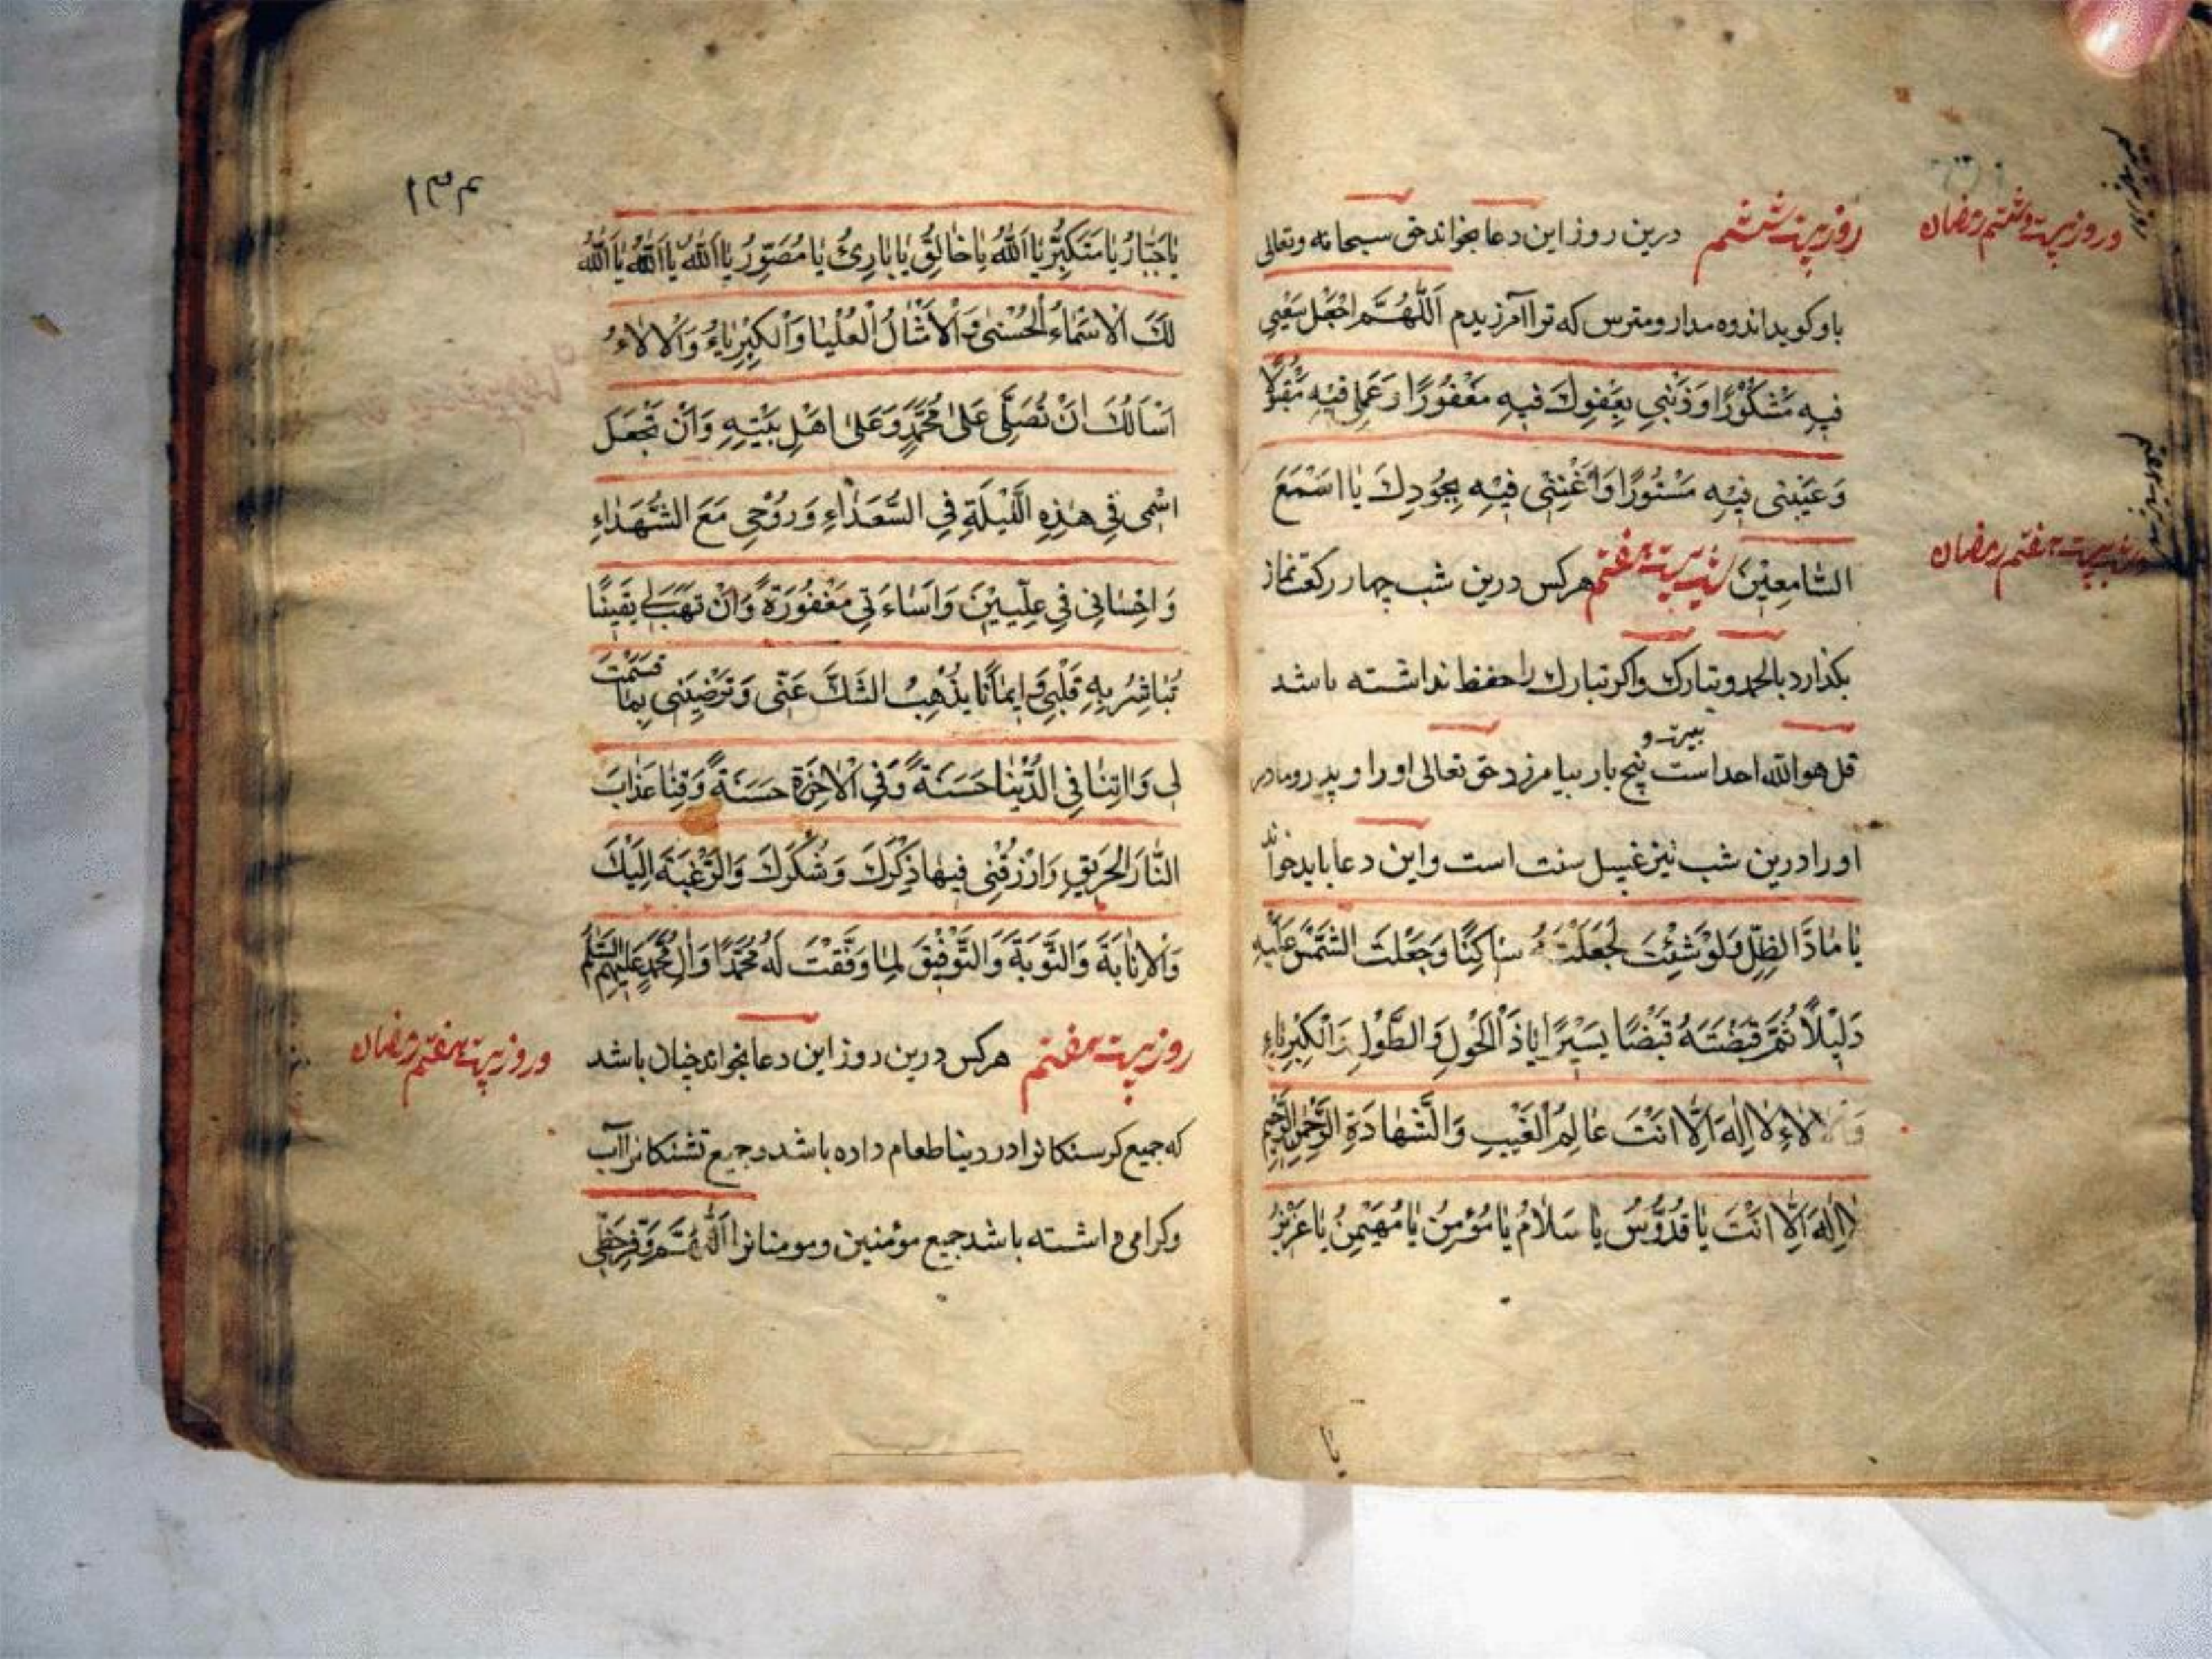 روز بیست ششم درین روز این دعا بخواند حق سبحانه وتعالی
باو کوید اندوه مدار ومترس که ترا آمرزیدم اَللّٰهُمَّ اجْعَلْ سَعْیِی
فِیهِ مَشْكُوْرًا وَذَنْبِی بِعَفْوِكَ فیهِ مَغْفُورًا وَعَمَلِی فِیْهِ مَقْبُولًا
وَعَیْبِیْ فِیْهِ مَسْتُورًا وَاَغْنِنِی فِیْهِ بِجُودِكَ یَا اَسْمَعَ
السَّامِعِیْنَ شب بیست هفتم هرکس درین شب چهار رکعت نماز
بکذارد بالحمد وتبارك واکر تبارك را حفظ نداشته باشد
قل هو الله احد است بیست و پنج بار بیامرزد حق تعالی اورا و پدر ومادر
اورا درین شب نیز غسل سنت است واین دعا باید خواند
یَا مَادَّ الظِّلِّ وَلَوْ شِئْتَ لَجَعَلْتَهُ سَاكِنًا وَجَعَلْتَ الشَّمْسَ عَلَیْهِ
دَلِیْلًا ثُمَّ قَبَضْتَهُ قَبْضًا یَسِیْرًا یَاذَا الْحَوْلِ وَالطَّوْلِ وَالْكِبْرِیَاءِ
وَالْاٰلَاءِ لَا اِلٰهَ اِلَّا اَنْتَ عَالِمُ الْغَیْبِ وَالشَّهَادَةِ الرَّحْمٰنُ الرَّحِیْمُ
لَا اِلٰهَ اِلَّا اَنْتَ یَا قُدُّوْسُ یَا سَلَامُ یَا مُؤْمِنُ یَا مُهَیْمِنُ یَا عَزِیْزُ
یا
وروز بیست وششم رمضان
شب بیست هفتم رمضان
۱۳۴
یَاجَبَّارُ یَا مُتَكَبِّرُ یَا اَللّٰهُ یَا خَالِقُ یَا بَارِئُ یَا مُصَوِّرُ یَا اَللّٰهُ یَا اَللّٰهُ یَا اَللّٰهُ
لَكَ الْاَسْمَاءُ الْحُسْنٰی وَالْاَمْثَالُ الْعُلْیَا وَالْكِبْرِیَاءُ وَالْاٰلَاءُ
اَسْاَلُكَ اَنْ تُصَلِّیَ عَلٰی مُحَمَّدٍ وَعَلٰی اَهْلِ بَیْتِهِ وَاَنْ تَجْعَلَ
اسْمِی فِی هٰذِهِ اللَّیْلَةِ فِی السُّعَدَاءِ وَرُوْحِی مَعَ الشُّهَدَاءِ
وَاِحْسَانِی فِی عِلِّیِّیْنَ وَاِسَاءَتِی مَغْفُورَةً وَاَنْ تَهَبَ لِی یَقِیْنًا
تُبَاشِرُ بِهِ قَلْبِی وَاِیْمَانًا یَذْهَبُ الشَّكَّ عَنِّی وَتَرْضِیَنِی بِمَا قَسَمْتَ
لِی وَاٰتِنَا فِی الدُّنْیَا حَسَنَةً وَفِی الْاٰخِرَةِ حَسَنَةً وَقِنَا عَذَابَ
النَّارِ الْحَرِیْقِ وَارْزُقْنِی فِیهَا ذِكْرَكَ وَشُكْرَكَ وَالرَّغْبَةَ اِلَیْكَ
وَالْاِنَابَةَ وَالتَّوْبَةَ وَالتَّوْفِیْقَ لِمَا وَفَّقْتَ لَهُ مُحَمَّدًا وَاٰلَ مُحَمَّدٍ عَلَیْهِمُ السَّلَامُ
روز بیست هفتم هرکس درین روز این دعا بخواند چنان باشد
که جمیع کرسنکانرا در دینا طعام داده باشد وجمیع تشنکانرا آب
وکرامی داشته باشد جمیع مؤمنین ومومناترا اَللّٰهُمَّ وَفِّرْ حَظِّی
وروز بیست هفتم رمضان